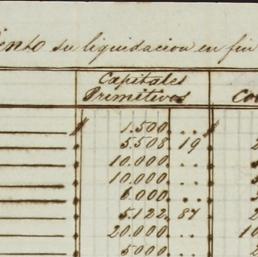 iento su liquidacion en fin
Capitales
Primitivos Co
1.500 ..
5.508 19 2
10.000 ..
10.000 ..
6.000 ...
5.122 87 2
20.000 .. 10
5000 .. 2